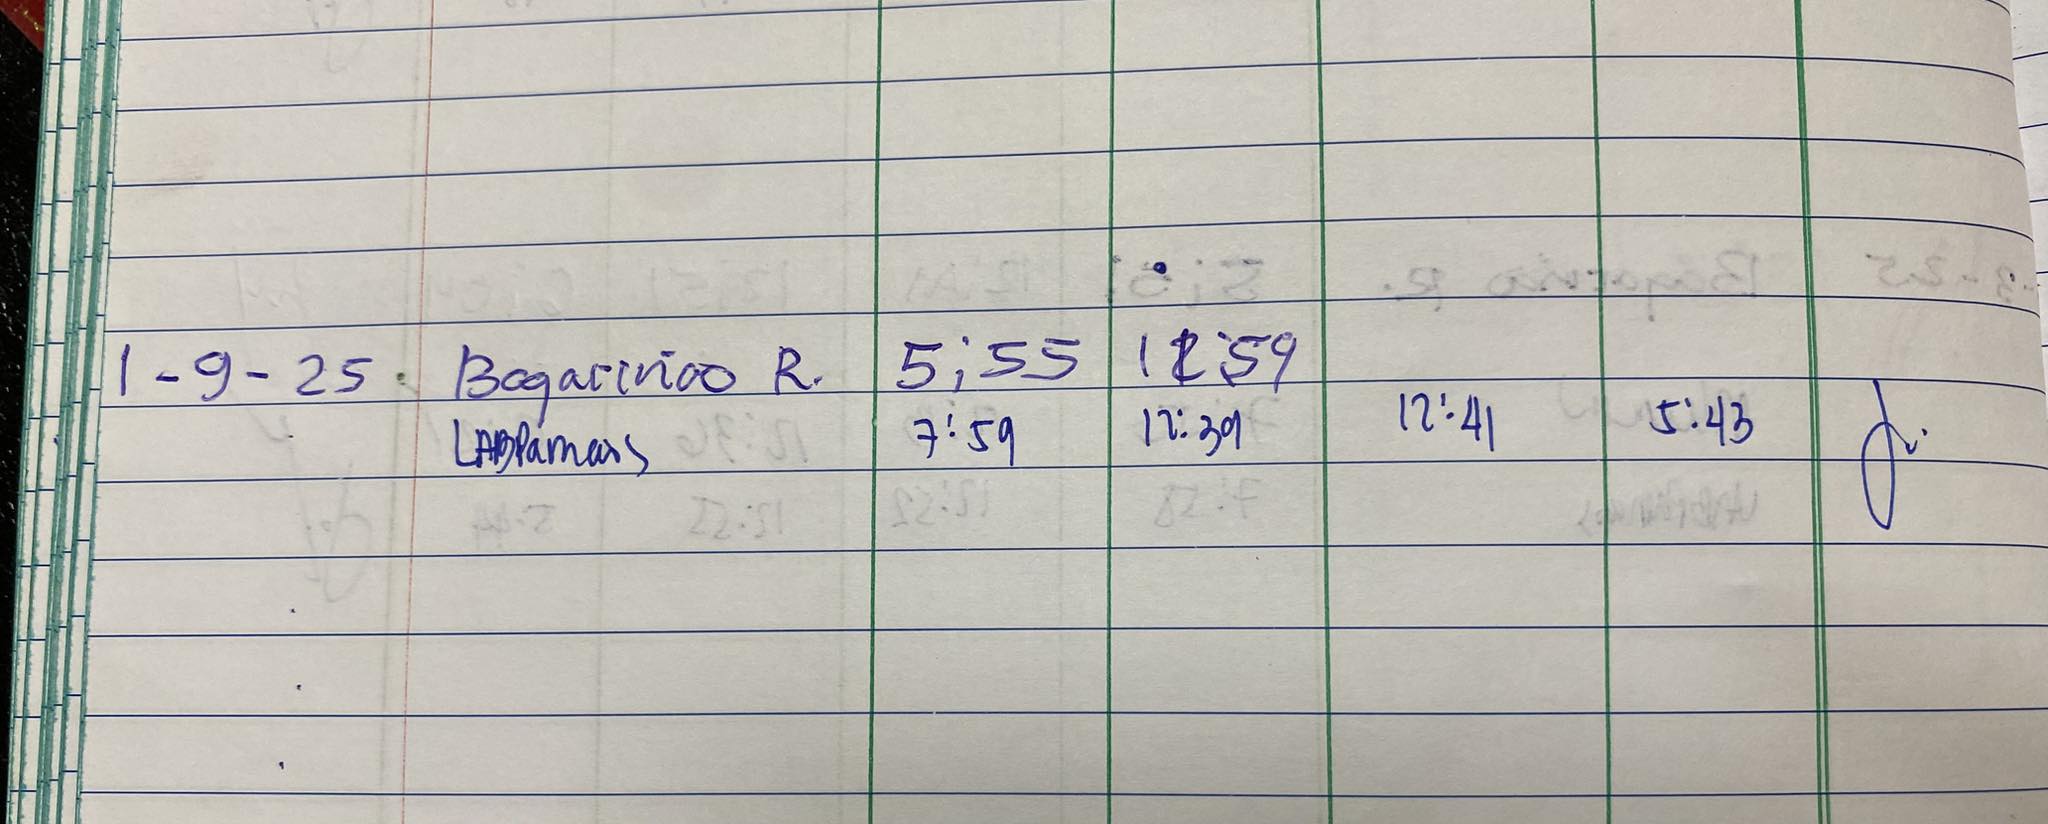 1-9-25. Bagarinao R. 5:55 12:59
LABPamaos 7:59 12:39 12:41 5:43